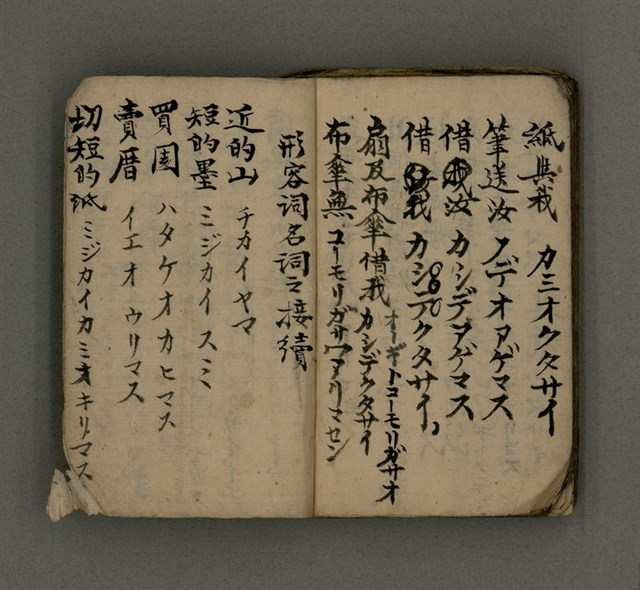 紙與我 カミオクタサイ
筆送汝 フデオアゲマス
借汝 カシデアゲマス
借我 カシデクタサイ
扇及布傘借我 オーギトコーモリガサオカシデクタサイ
布傘無 コーモリガサワアリマセン
形容词名词之接續
近的山 チカイヤマ
短的墨 ミジカイスミ
買園 ハタケオカヒマス
賣厝 イエオウリマス
切短的紙 ミジカイカミオキリマス